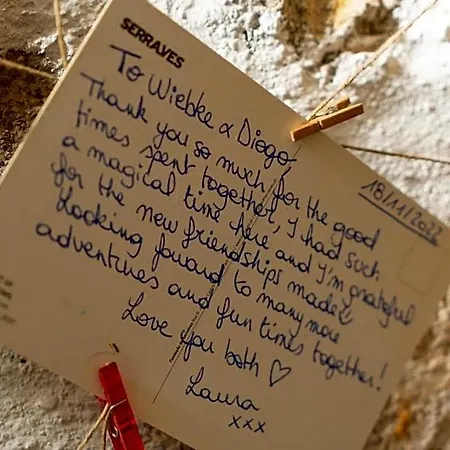 SERRALVES
To Wiebke & Diogo
18/11/2022
Thank you so much for the good
times spent together, I had such
a magical time here and I'm grateful
for the new friendships made!
Looking foward to many more
adventures and fun times together!
Love you both ♡
Laura
xxx